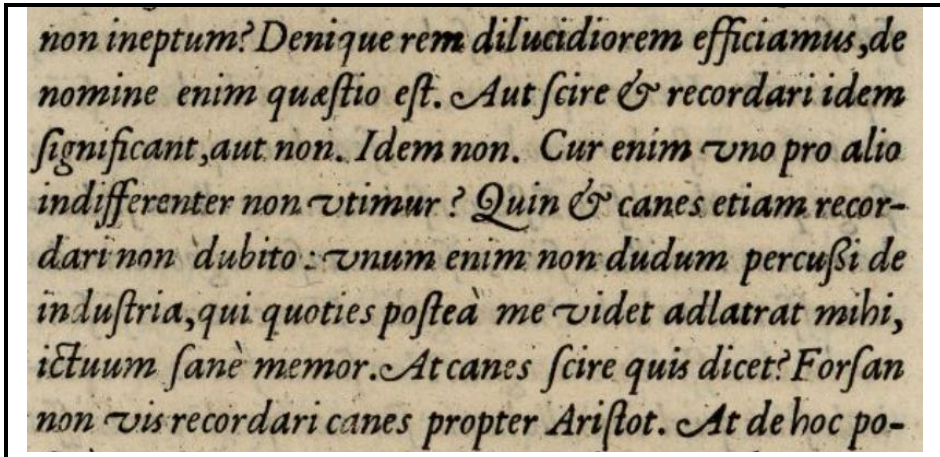 non ineptum? Denique rem dilucidiorem efficiamus, de
nomine enim quæſtio eſt. Aut ſcire & recordari idem
ſignificant, aut non. Idem non. Cur enim vno pro alio
indifferenter non vtimur? Quin & canes etiam recor-
dari non dubito: vnum enim non dudum percuſſi de
induſtria, qui quoties poſteà me videt adlatrat mihi,
ictuum ſanè memor. At canes ſcire quis dicet? Forſan
non vis recordari canes propter Ariſtot. At de hoc po-